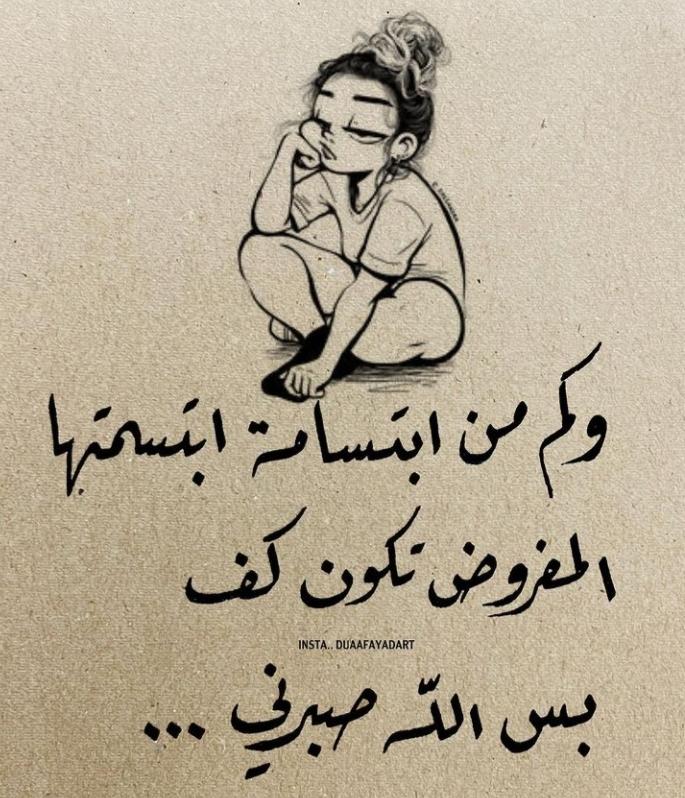 وكم من ابتسامة ابتسمتها
المفروض تكون كف
INSTA.. DUAAFAYADART
بس اللّه صبرني ...